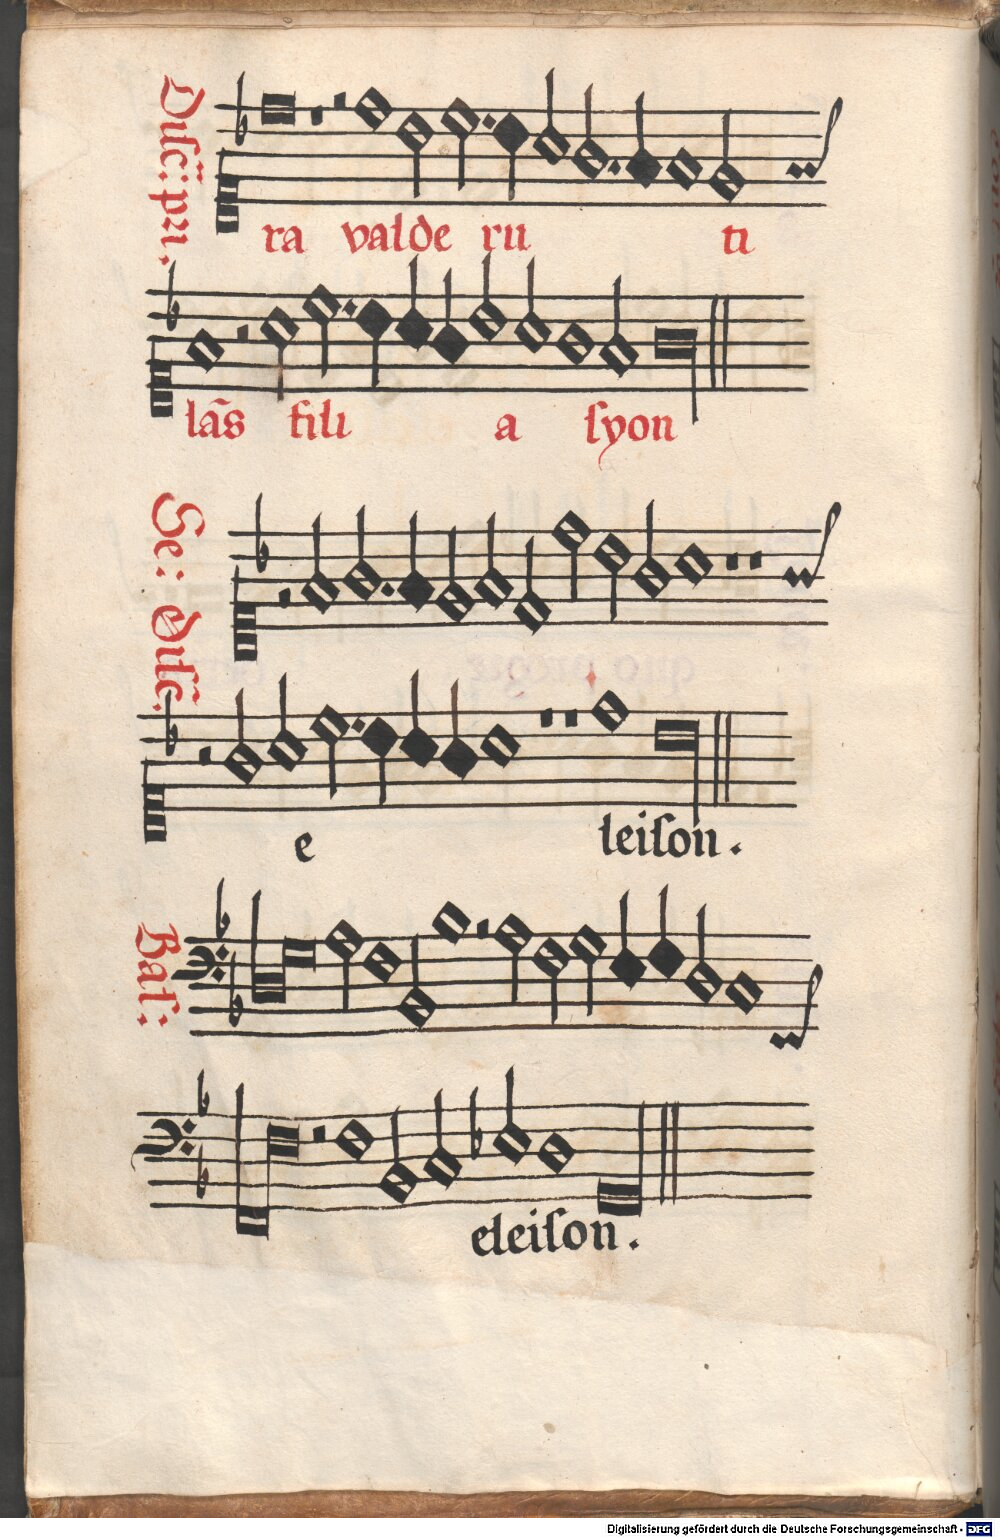 Disc: pri.
ra valde ru ti
lās fili a syon
Se: Disc:
e leison.
Bas:
eleison.
Digitalisierung gefördert durch die Deutsche Forschungsgemeinschaft - DFG